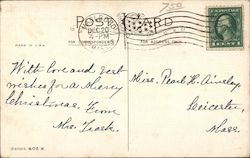 750
POST CARD
DEC 20
4-PM
MADE IN U.S.A.
FOR CORRESPONDENCE
FOR ADDRESS ONLY
With love and best
wishes for a Merry
Christmas. From
Mrs. Trask.
Miss. Pearl H. Ainsley,
Leicester,
Mass.